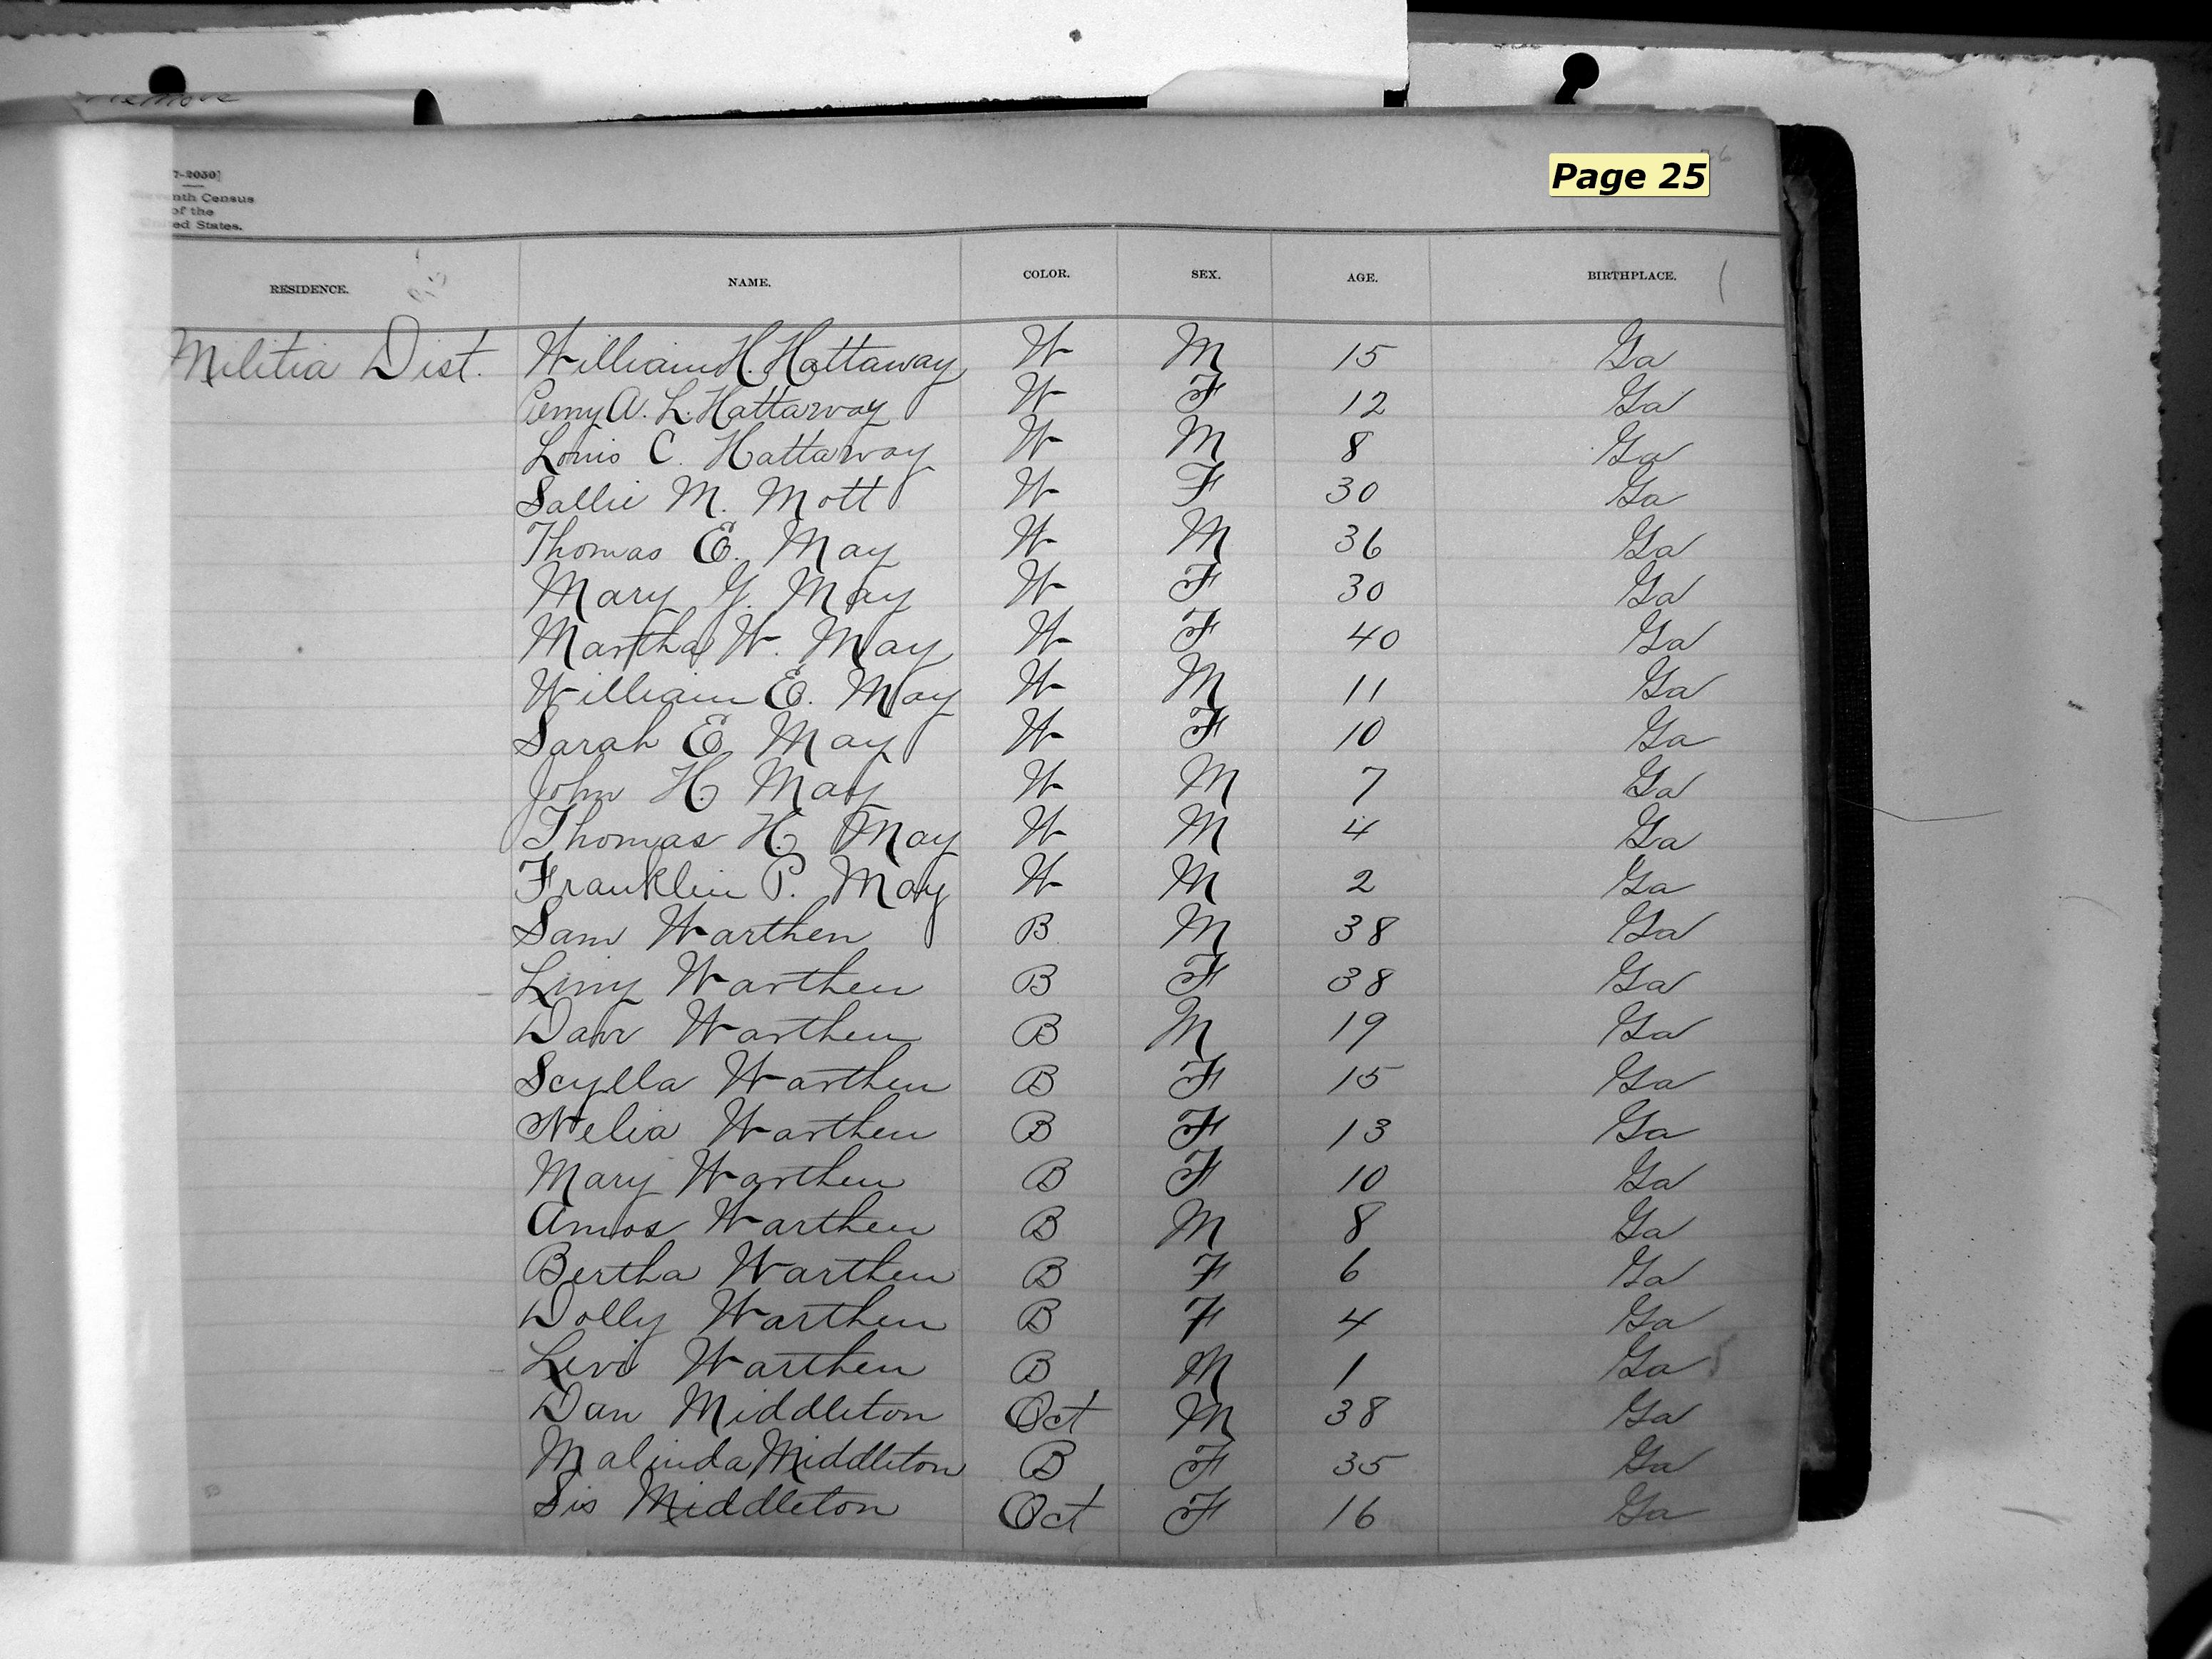 Remove
Page 25
7-2050]
nth Census
of the
ed States.
RESIDENCE. NAME. COLOR. SEX. AGE. BIRTHPLACE.
Militia Dist. William H. Hattaway W M 15 Ga
A. L. Hattaway W F 12 Ga
Louis C. Hattaway W M 8 Ga
Sallie M. Mott W F 30 Ga
Thomas E. May W M 36 Ga
Mary G. May W F 30 Ga
Martha W. May W F 40 Ga
William E. May W M 11 Ga
Sarah E May W F 10 Ga
John H. May W M 7 Ga
Thomas H. May W M 4 Ga
Franklin P. May W M 2 Ga
Sam Warthen B M 38 Ga
Liny Warthen B F 38 Ga
Dan Warthen B M 19 Ga
Scylla Warthen B F 15 Ga
Nelia Warthen B F 13 Ga
Mary Warthen B F 10 Ga
Amos Warthen B M 8 Ga
Bertha Warthen B F 6 Ga
Dolly Warthen B F 4 Ga
Levi Warthen B M 1 Ga
Dan Middleton Oct M 38 Ga
Malinda Middleton B F 35 Ga
Sis Middleton Oct F 16 Ga